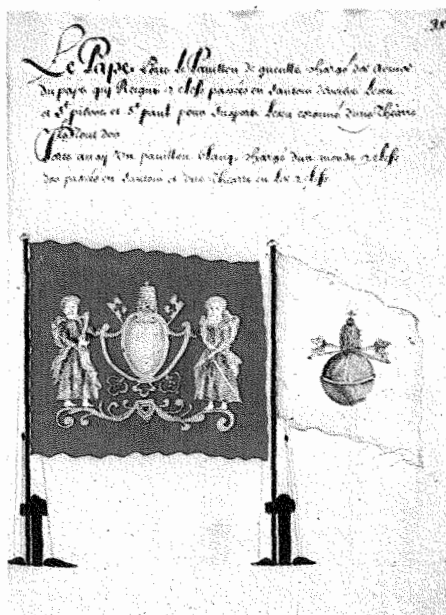 Le Pape. Porte le Pavillon de gueulle chargé des Armes
du pape qui Reigne 2 clefs passées en sautoir deriere Lescu
et St pierre et St paul pour suports Lescu coronné d'une Thiarre
Le tout dor
Porte aussy Un pavillon blanq chargé d'un monde 2 clefs
dor passées en sautoir et d'une Thiarre 2 clefs